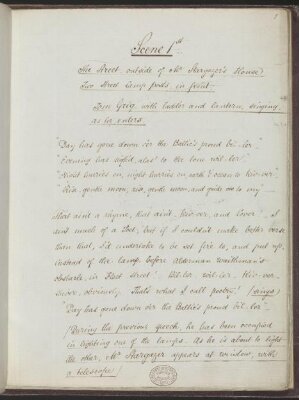 Scene 1st
The Street outside of Mr Stargazer's House
Two Street Lamp posts in front
Tom Grig with ladder and lantern, singing
as he enters
"Day has gone down o'er the Baltic's proud bil-lor"
"Evening has sigh'd, alas! to the lone wil-lor"
"Night hurries on, night hurries on, earth & ocean to kiv-ver"
"Rise gentle moon, rise, gentle moon, and guide me to my
That ain't a rhyme, that ain't, kiv-ver, and lover! I
ain't much of a Poet, but if I couldn't make better verse
than that, I'd undertake to be set fire to, and put up,
instead of the lamp before Alderman Waithman's
obstacle, in Fleet Street! Bil-lor wil-lor kiv-ver
obviously. That's what I call poetry! (sings)
"Day has gone down o'er the Baltic's proud bil-lor"
(During the previous speech, he has been occupied
in lighting one of the lamps. As he is about to light
the other, Mr Stargazer appears at window, with
a telescope)